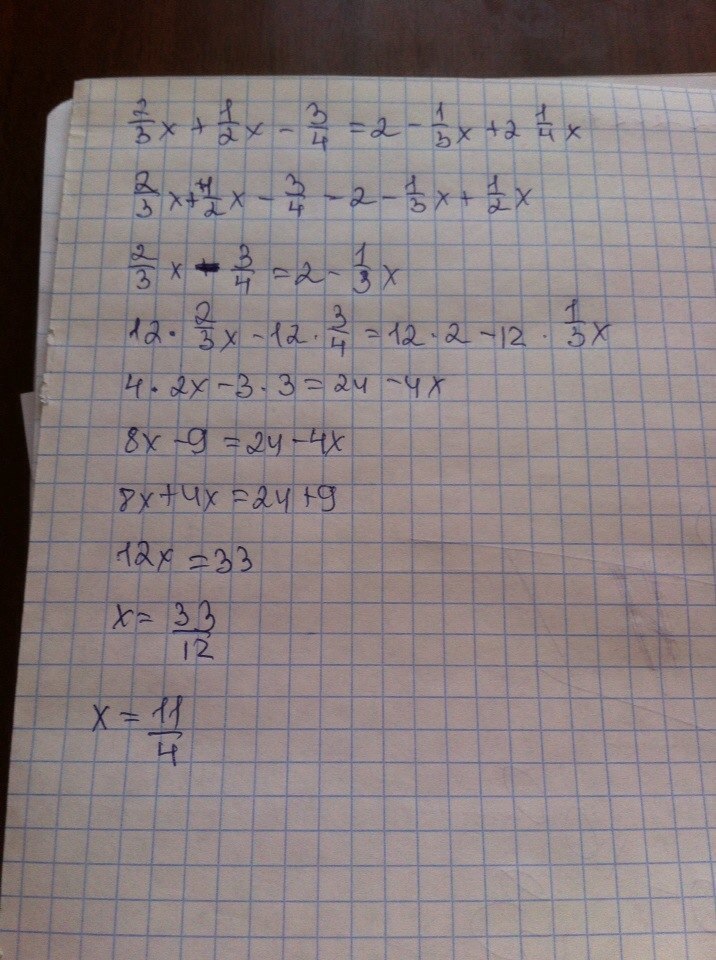 2/3 x + 1/2 x - 3/4 = 2 - 1/3 x + 2 1/4 x
2/3 x + 1/2 x - 3/4 - 2 - 1/3 x + 1/2 x
2/3 x - 3/4 = 2 - 1/3 x
12 · 2/3 x - 12 · 3/4 = 12 · 2 - 12 · 1/3 x
4 · 2x - 3 · 3 = 24 - 4x
8x - 9 = 24 - 4x
8x + 4x = 24 + 9
12x = 33
x = 33/12
x = 11/4